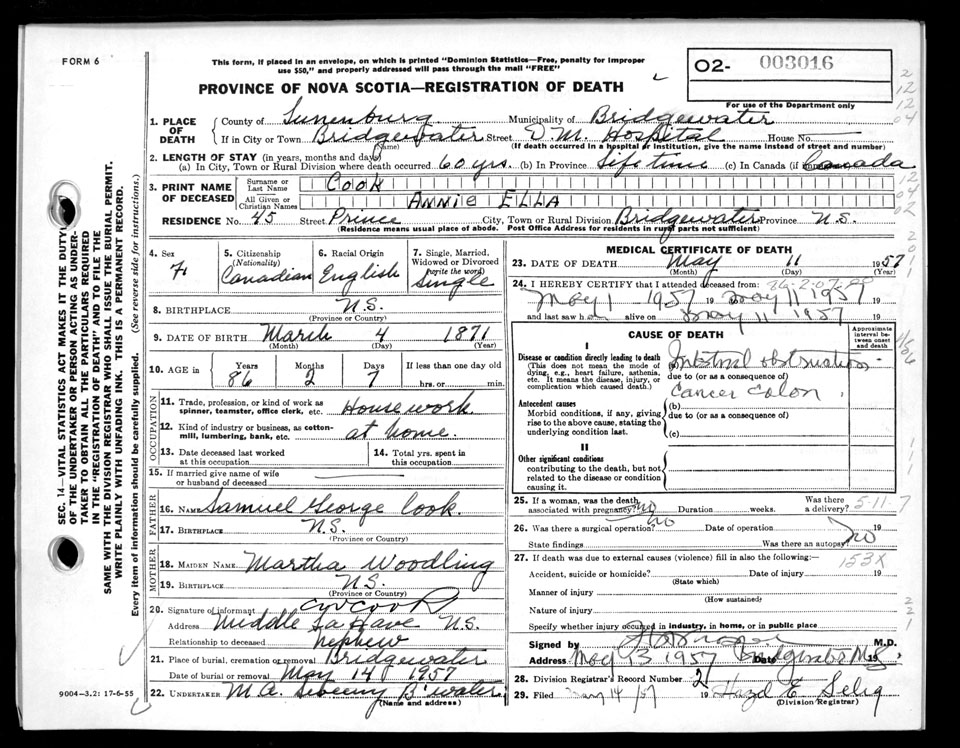 FORM 6
This form, if placed in an envelope, on which is printed "Dominion Statistics—Free, penalty for improper
use $50," and properly addressed will pass through the mail "FREE"
02- 003016
For use of the Department only
PROVINCE OF NOVA SCOTIA—REGISTRATION OF DEATH
SEC. 14—VITAL STATISTICS ACT MAKES IT THE DUTY
OF THE UNDERTAKER OR PERSON ACTING AS UNDER-
TAKER TO OBTAIN ALL THE PARTICULARS REQUIRED
IN THE "REGISTRATION OF DEATH" AND TO FILE THE
SAME WITH THE DIVISION REGISTRAR WHO SHALL ISSUE THE BURIAL PERMIT.
WRITE PLAINLY WITH UNFADING INK. THIS IS A PERMANENT RECORD.
Every item of information should be carefully supplied. (See reverse side for instructions.)
1. PLACE OF DEATH County of Lunenburg Municipality of Bridgewater
If in City or Town Bridgewater Street D.M. Hospital House No.
(Name) (If death occurred in a hospital or institution, give the name instead of street and number)
2. LENGTH OF STAY (in years, months and days)
(a) In City, Town or Rural Division where death occurred 60 yrs. (b) In Province Life time (c) In Canada (if Canada
3. PRINT NAME OF DECEASED Surname or Last Name Cook
All Given or Christian Names ANNIE ELLA
RESIDENCE No. 45 Street Prince City, Town or Rural Division Bridgewater Province N.S.
(Residence means usual place of abode. Post Office Address for residents in rural parts not sufficient)
4. Sex F.
5. Citizenship (Nationality) Canadian
6. Racial Origin English
7. Single, Married, Widowed or Divorced (write the word) Single
8. BIRTHPLACE N.S.
(Province or Country)
9. DATE OF BIRTH March 4 1871
(Month) (Day) (Year)
10. AGE in Years 86 Months 2 Days 7 If less than one day old
hrs. or min.
OCCUPATION
11. Trade, profession, or kind of work as
spinner, teamster, office clerk, etc. House work.
12. Kind of industry or business, as cotton-
mill, lumbering, bank, etc. at home.
13. Date deceased last worked
at this occupation
14. Total yrs. spent in
this occupation
15. If married give name of wife
or husband of deceased
FATHER
16. NAME Samuel George Cook.
17. BIRTHPLACE N.S.
(Province or Country)
MOTHER
18. MAIDEN NAME Martha Woodling
19. BIRTHPLACE N.S.
(Province or Country)
20. Signature of informant Cook
Address Middle La Have N.S.
Relationship to deceased nephew
21. Place of burial, cremation or removal Bridgewater
Date of burial or removal May 14 1957
22. UNDERTAKER M.A. Sweeny B'water
(Name and address)
9004-3.2: 17-6-55
MEDICAL CERTIFICATE OF DEATH
23. DATE OF DEATH May 11 1957
(Month) (Day) (Year)
24. I HEREBY CERTIFY that I attended deceased from:
May 1 1957 19 May 11 1957 19
and last saw h alive on May 11 1957 19
CAUSE OF DEATH
Approximate interval between onset and death
I
Disease or condition directly leading to death
(This does not mean the mode of
dying, e.g., heart failure, asthenia,
etc. It means the disease, injury, or
complication which caused death.)
Intestinal obstruction
due to (or as a consequence of)
Cancer Colon
Antecedent causes
Morbid conditions, if any, giving
rise to the above cause, stating the
underlying condition last.
(b)
due to (or as a consequence of)
(c)
II
Other significant conditions
contributing to the death, but not
related to the disease or condition
causing it.
25. If a woman, was the death
associated with pregnancy? no Duration weeks. Was there
a delivery? 5-11-7
26. Was there a surgical operation? no Date of operation 19
State findings Was there an autopsy? no
27. If death was due to external causes (violence) fill in also the following:—
153X
Accident, suicide or homicide? Date of injury 19
(State which)
Manner of injury
(How sustained)
Nature of injury
Specify whether injury occurred in industry, in home, or in public place
Signed by M.D.
Address May 13 1957 Date Bridgewater N.S. 19
28. Division Registrar's Record Number 21
29. Filed May 14/57 19 Hazel E. Selig
(Division Registrar)